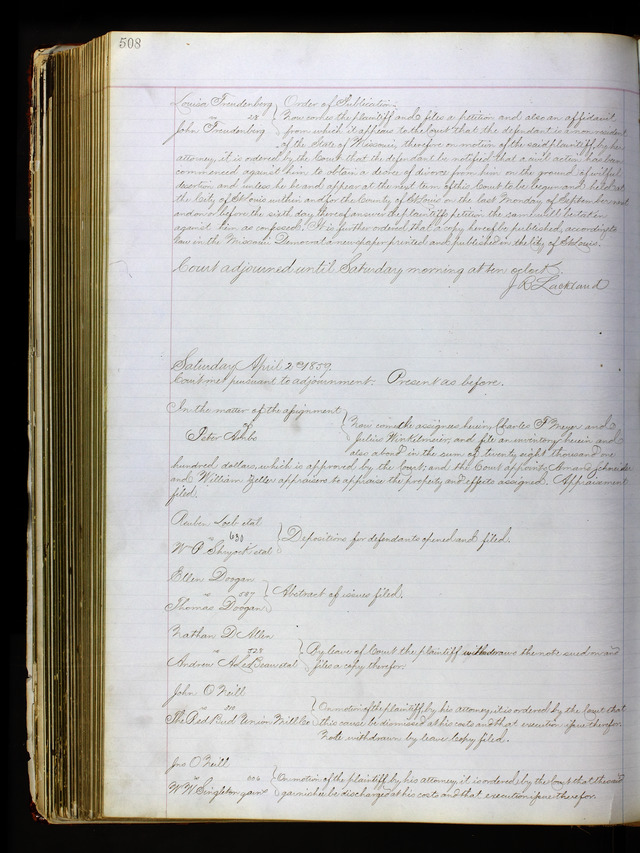 508
Louisa Freudenberg } Order of Publication
vs 28 } Now comes the plaintiff and files a petition and also an affidavit
John Freudenberg from which it appears to the Court that the defendant is a non resident
of the State of Missouri, therefore on motion of the said plaintiff by her
attorney, it is ordered by the Court that the defendant be notified that a civil action has been
commenced against him to obtain a decree of divorce from him on the ground of wilful
desertion and unless he be and appear at the next term of this Court to be begun and held at
the City of St Louis within and for the County of St Louis on the last Monday of September next
and on or before the sixth day thereof answer the plaintiffs petition the same will be taken
against him as confessed. It is further ordered that a copy hereof be published, according to
law in the Missouri Democrat a newspaper printed and published in the City of St Louis.
Court adjourned until Saturday morning at ten oclock.
J R Lackland
Saturday April 2nd 1859.
Court met pursuant to adjournment. Present as before.
In the matter of the assignment }
of } Now come the assignees herein Charles F Meyer and
Peter Julius Winkelmeier, and file an inventory herein and
also a bond in the sum of twenty eight thousand one
hundred dollars, which is approved by the Court; and the Court appoints Schneider
and William Zeller appraisers to appraise the property and effects assigned. Appraisement
filed.
Reuben Loeb etal
vs 630 } Depositions for defendants opened and filed.
W P Shryock etal
Ellen Doogan
vs 587 } Abstract of issues filed.
Thomas Doogan
Nathan D Allen
vs 528 } By leave of Court the plaintiff withdraws the note sued on and
Andrew etal files a copy therefor.
John O'Neill
vs } On motion of the plaintiff by his attorney it is ordered by the Court that
The Red Bud Union Mill Co this cause be dismissed at his costs and that execution issue therefor.
Note withdrawn by leave Copy filed.
Jno O'Neill
vs 606 } On motion of the plaintiff by his attorney, it is ordered by the Court that the said
W W Singleton garnt garnishee be discharged at his costs and that execution issue therefor.